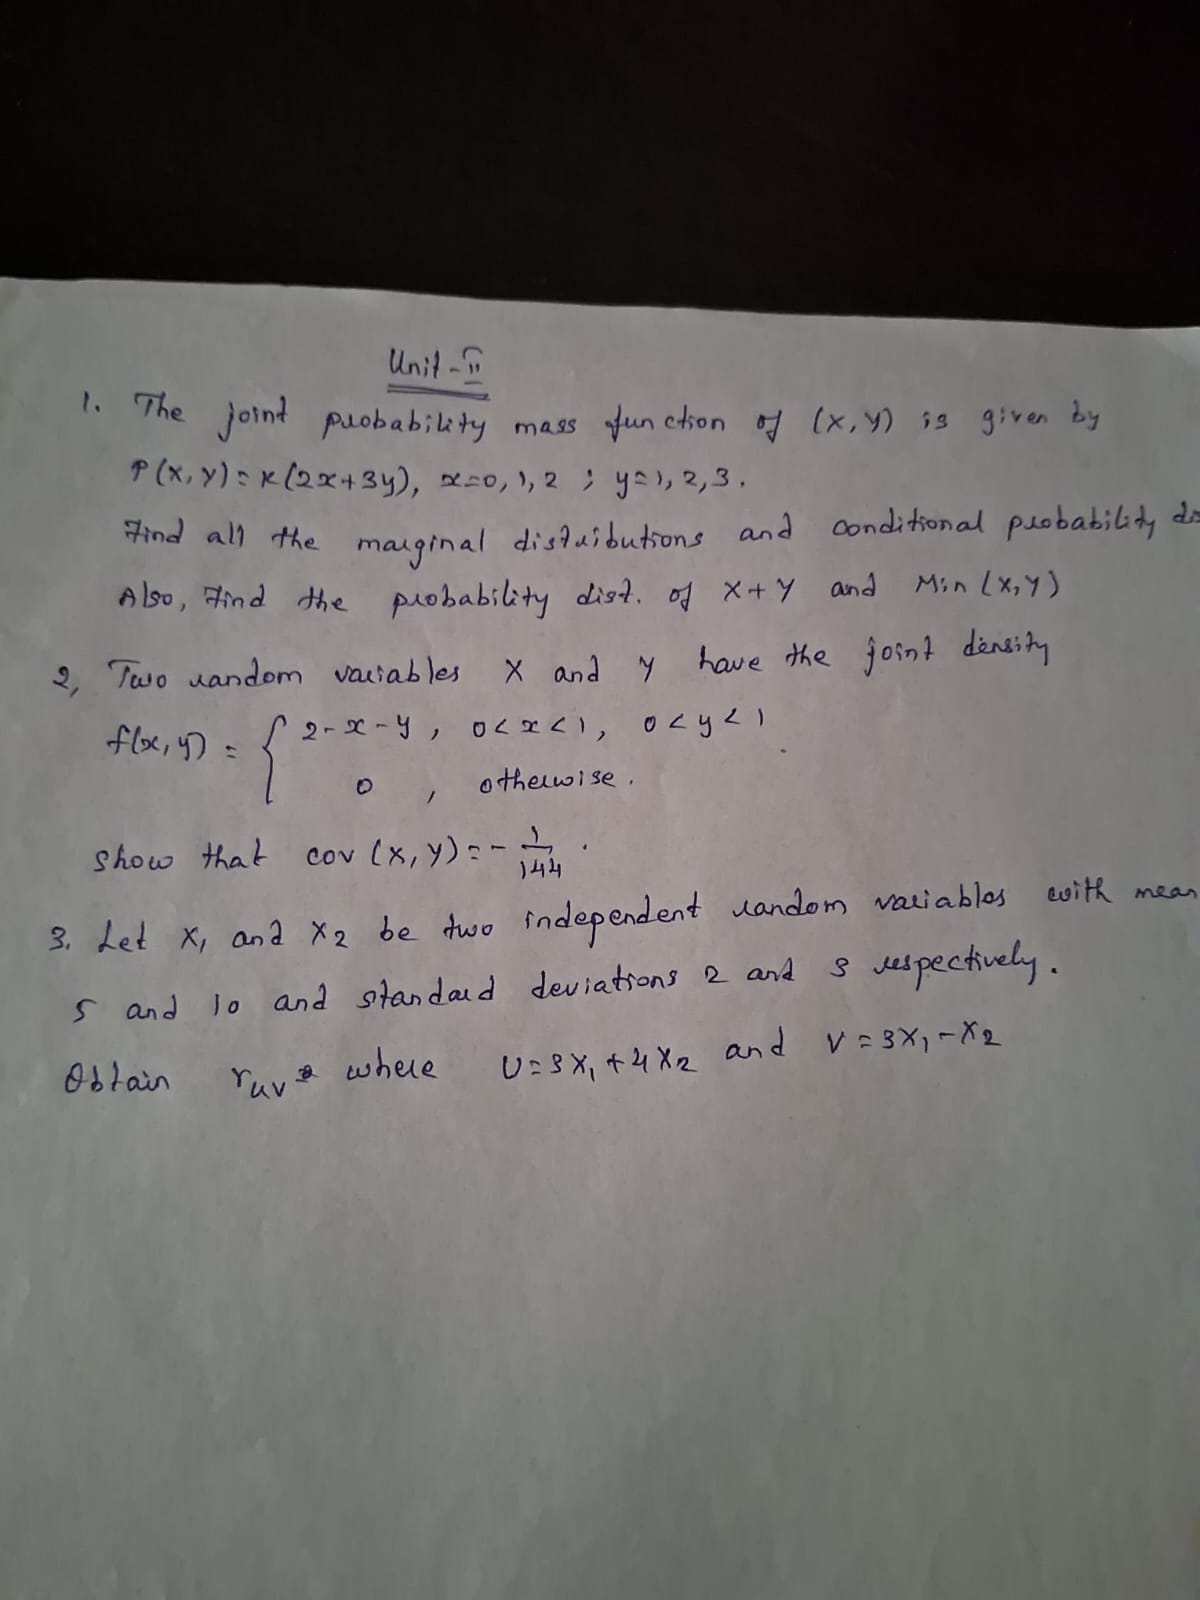 Unit-II
1. The joint probability mass function of (X, Y) is given by
P(X, Y) = K(2x+3y), x=0, 1, 2 ; y=1, 2, 3.
Find all the marginal distributions and conditional probability dis
Also, Find the probability dist. of X+Y and Min (X, Y)
2, Two random variables X and Y have the joint density
f(x, y) = { 2-x-y, 0<x<1, 0<y<1
0 , otherwise.
show that cov (X, Y) = - 1/144 .
3. Let X₁ and X₂ be two independent random variables with mean
5 and 10 and standard deviations 2 and 3 respectively.
Obtain rᵤᵥ where U=3X₁+4X₂ and V=3X₁-X₂